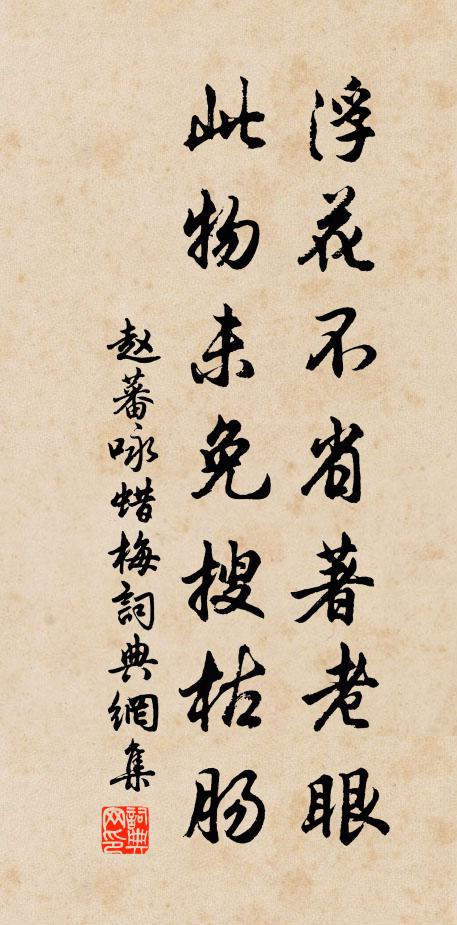 浮花不省著老眼
此物未免搜枯肠
赵蕃咏蜡梅詞典網集
詞典
网印